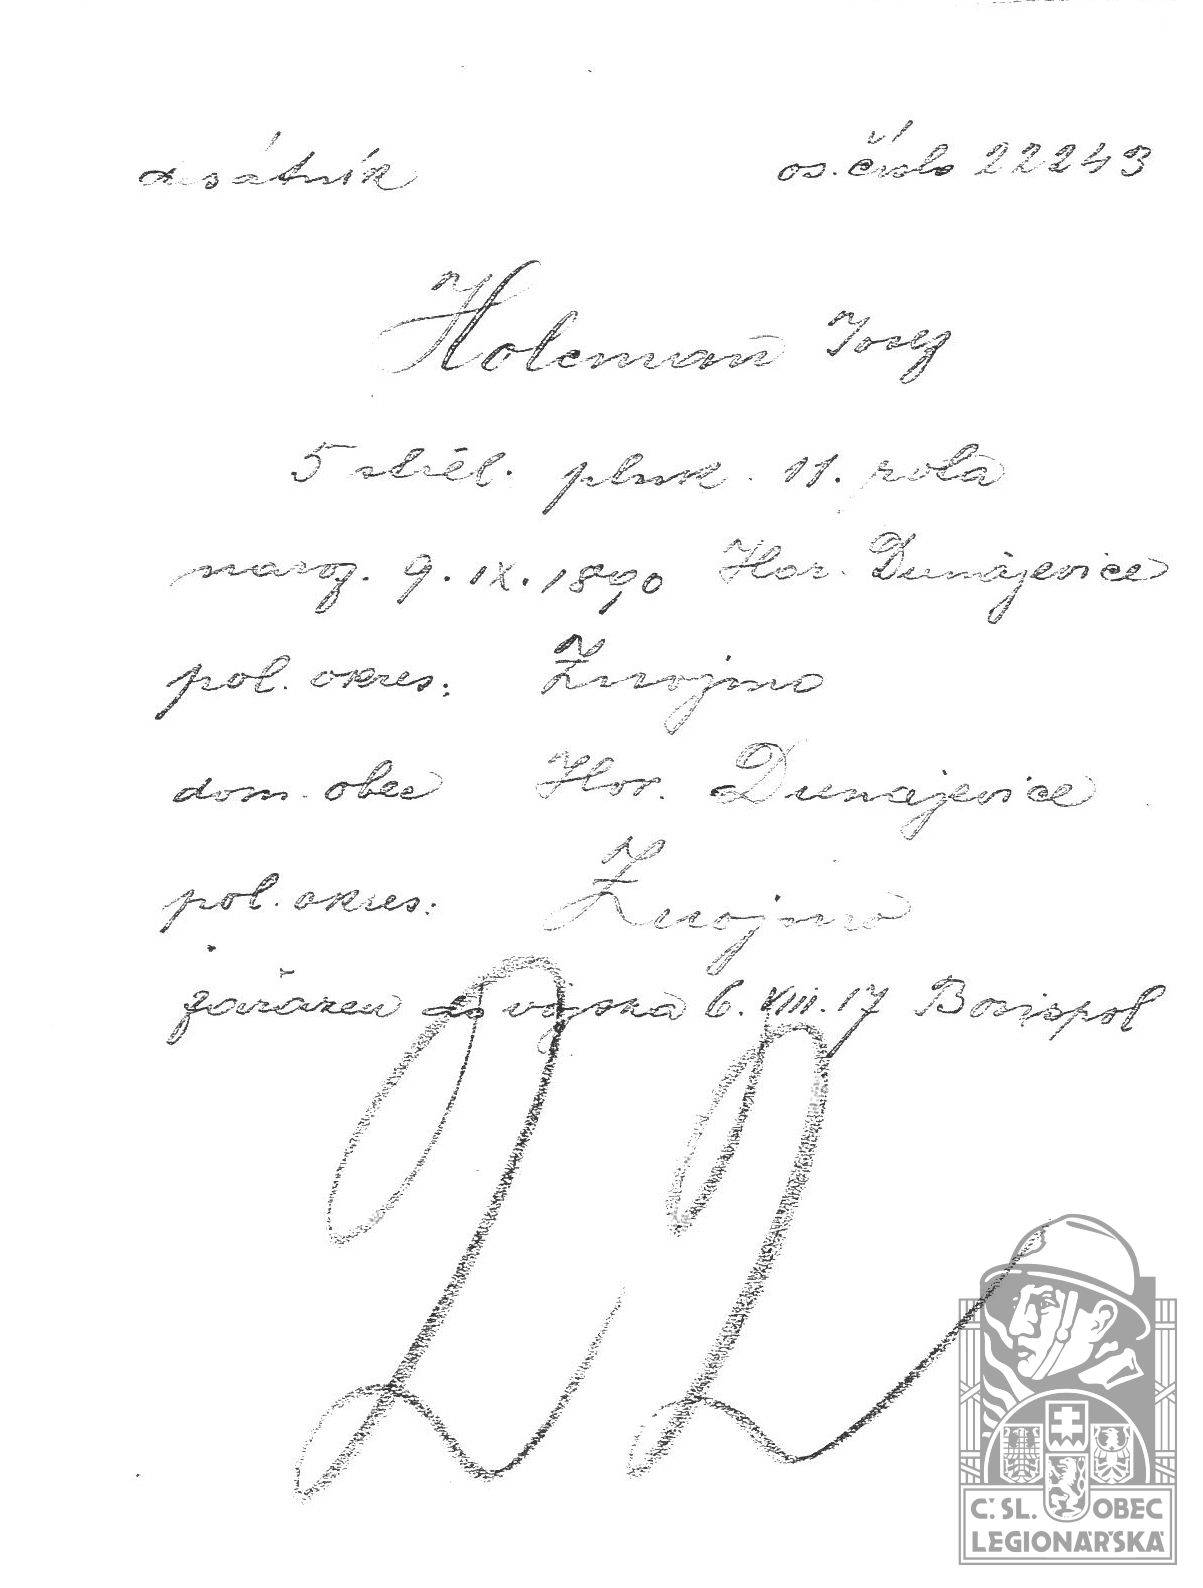 desátník os. číslo 22243
Holeman Josef
5 střel. pluk. 11. rota
naroz. 9. IX. 1890 Hor. Dunajevice
pol. okres: Znojmo
dom. obec Hor. Dunajevice
pol. okres: Znojmo
zařazen do vojska 6. VIII. 17 Borispol
22
Č. SL. OBEC
LEGIONÁŘSKÁ